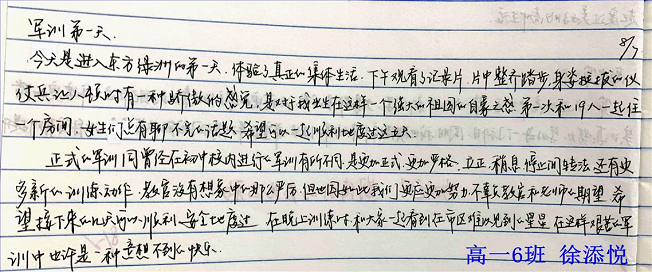 军训第一天
8/7
今天是进入东方绿洲的第一天,体验了真正的集体生活.下午观看了记录片,片中整齐踏步,身姿挺拔的仪
仗兵让人顿时有一种骄傲的感觉,是对于我出生在这样一个强大的祖国的自豪之感.第一次和19人一起住
一个房间,女生们总有聊不完的话题,希望可以一起顺利地度过这五天.
正式的军训同曾经在初中校内进行的军训有所不同,是更加正式,更加严格.立正,稍息,停止间转法,还有更
多新的训练动作.教官没有想象中的那么严厉,但也因如此我们更应更加努力,不辜负教官和老师的期望.希
望接下来的几天可以顺利、安全地度过.在晚上训练时和大家一起看到在市区难以见到的星星,在这样艰苦的军
训中也许是一种意想不到的快乐.
高一6班 徐添悦